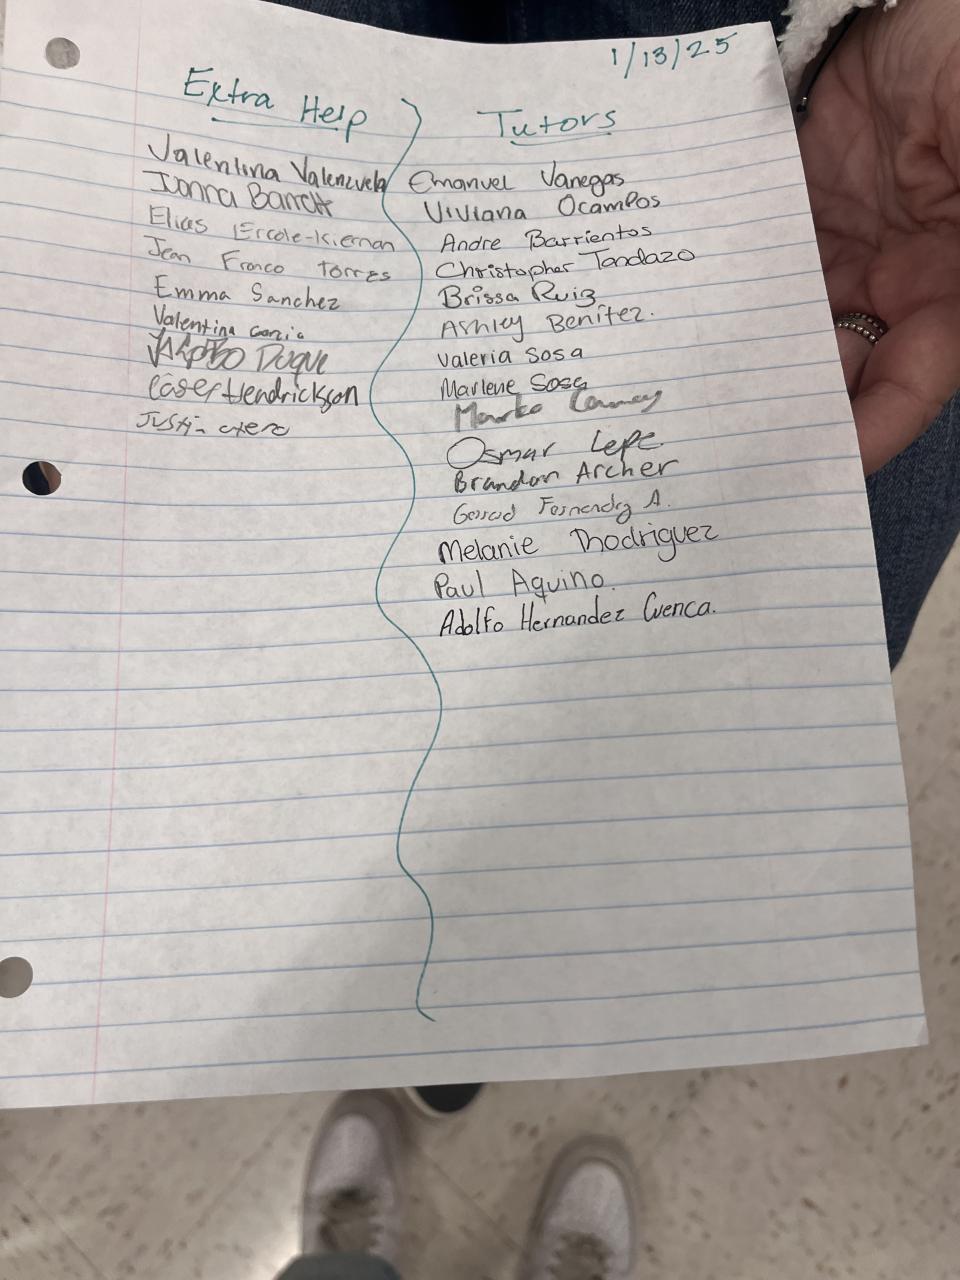 1/13/25
Extra Help
Valentina Valenzuela
Barrett
Elias Ercole-Kiernan
Jean Franco Torres
Emma Sanchez
Valentina
Duque
Casey Hendrickson
Justin
Tutors
Emanuel Vanegas
Viviana Ocampos
Andre Barrientos
Christopher Tandazo
Brissa Ruiz
Ashley Benitez.
Valeria Sosa
Marlene Sosa
Osmar Lepe
Brandon Archer
A.
Melanie Rhodriguez
Paul Aquino
Adolfo Hernandez Cuenca.